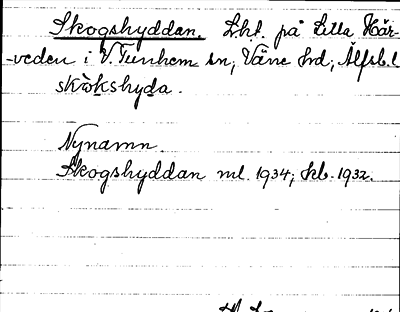 Skogshyddan. Lht. på Lilla Här-
-veden i V. Tunhem sn, Väne hd, Älfsb. l
skòkshyda.
Nynamn.
Skogshyddan ml. 1934; kb. 1932.